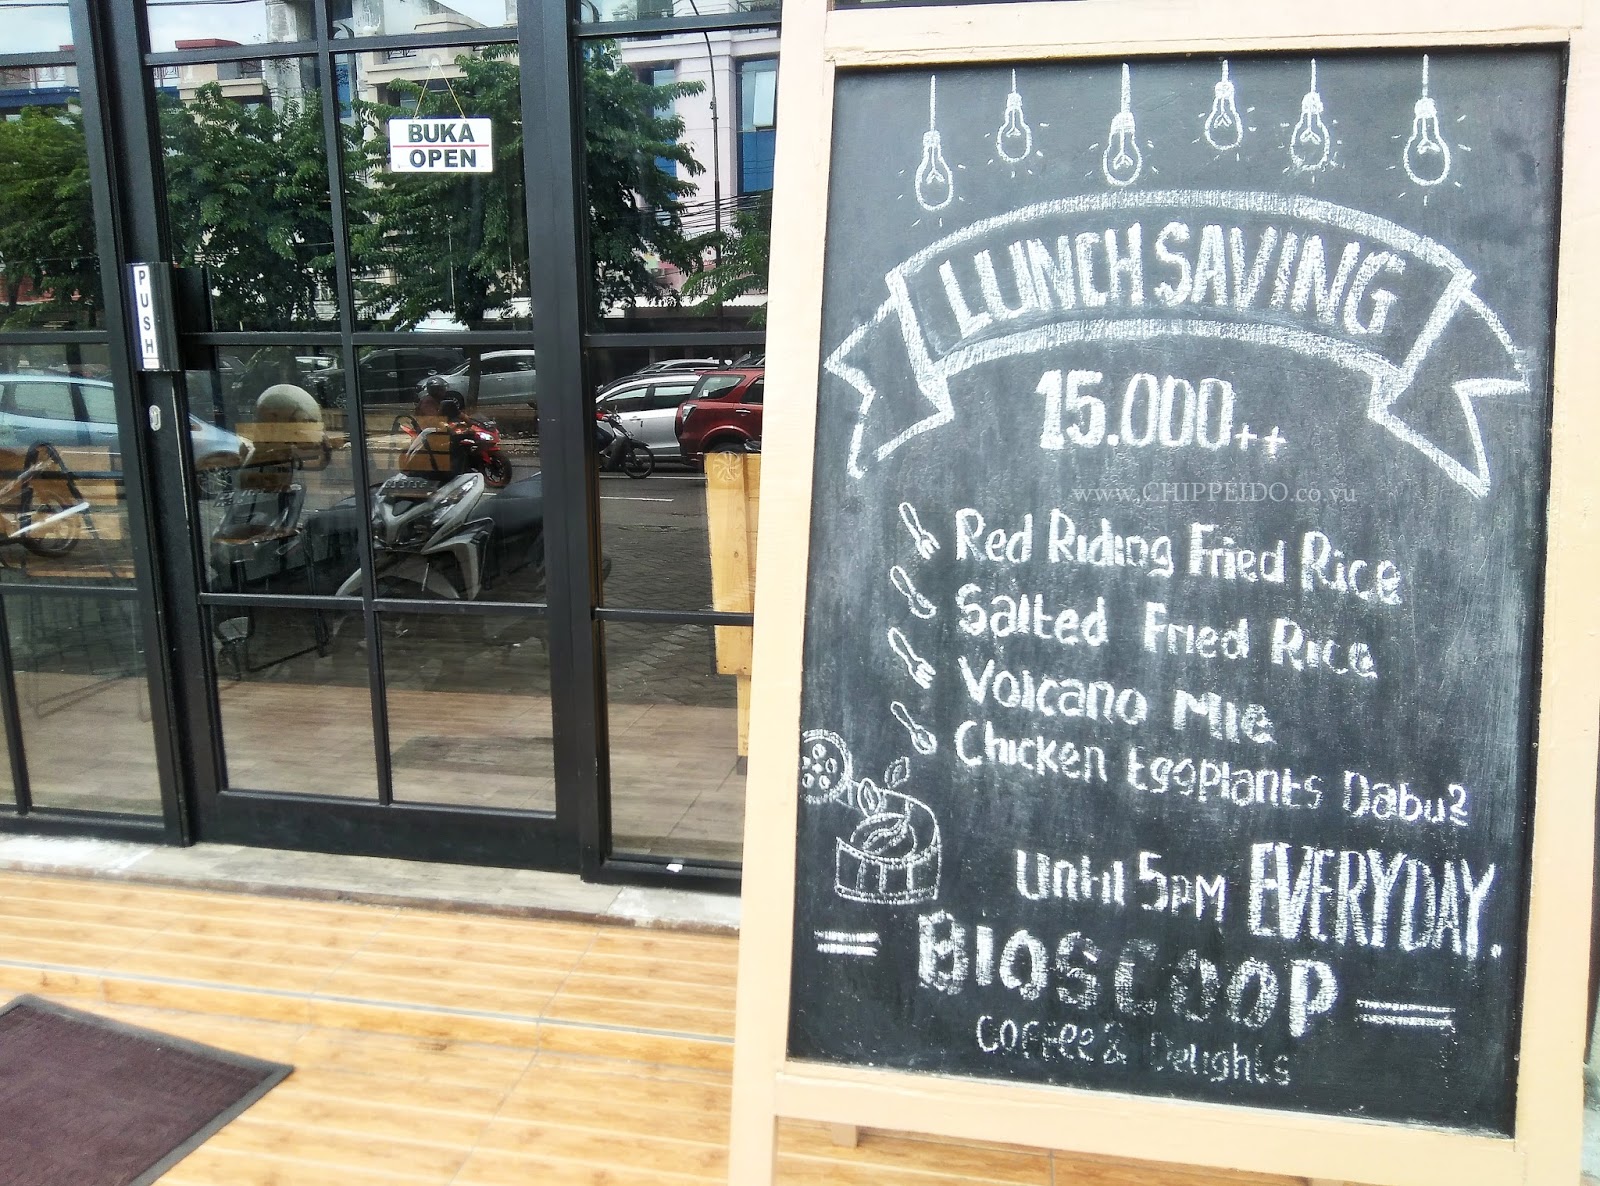 BUKA
OPEN
PUSH
LUNCH SAVING
15.000++
www.CHIPPEIDO.co.vu
Red Riding Fried Rice
Salted Fried Rice
Volcano Mie
Chicken Eggplants Dabu2
Until 5PM EVERYDAY.
BIOSCOOP
Coffee & Delights